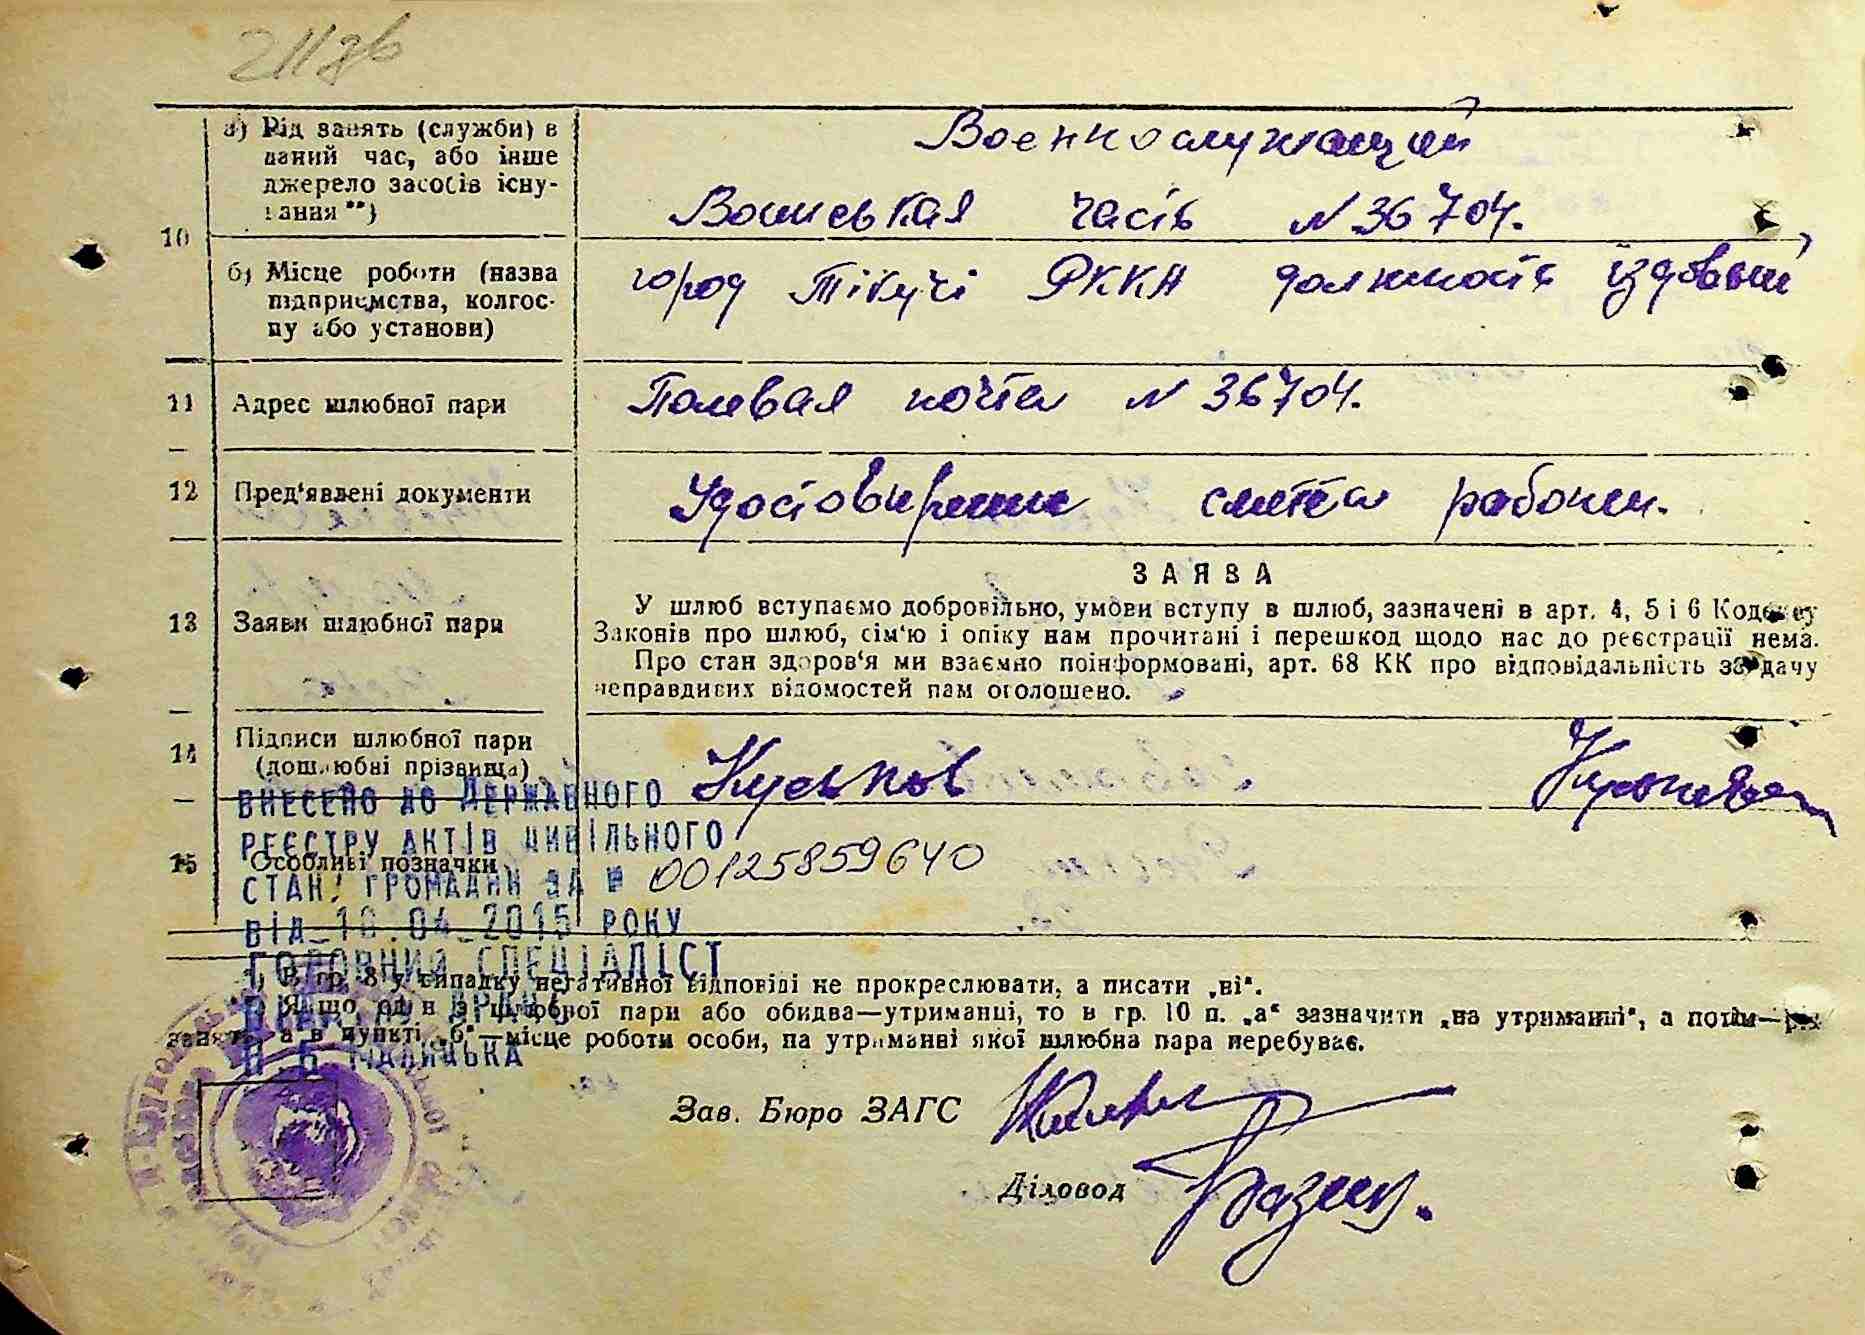 10
а) Рід занять (служби) в
даний час, або інше
джерело засобів існу-
вання **)
Военнослужащий
Воинськая часть N 36704.
б) Місце роботи (назва
підприємства, колгос-
пу або установи)
город Тікучі РККА должность їздовый
11 Адрес шлюбної пари
Полевая почта N 36704.
12 Пред'явлені документи
13 Заяви шлюбної пари
ЗАЯВА
У шлюб вступаємо добровільно, умови вступу в шлюб, зазначені в арт. 4, 5 і 6 Кодексу
Законів про шлюб, сім'ю і опіку нам прочитані і перешкод щодо нас до реєстрації нема.
Про стан здоров'я ми взаємно поінформовані, арт. 68 КК про відповідальність за дачу
неправдивих відомостей нам оголошено.
14 Підписи шлюбної пари
(дошлюбні прізвища)
Куськов
15 Особливі позначки
ВНЕСЕНО ДО ДЕРЖАВНОГО
РЕЄСТРУ АКТІВ ЦИВІЛЬНОГО
СТАНУ ГРОМАДЯН ЗА № 00125859640
ВІД 10.04.2015 РОКУ
ГОЛОВНИЙ СПЕЦІАЛІСТ
*) В гр. 8 у випадку негативної відповіді не прокреслювати, а писати „ні“.
**) Якщо один з шлюбної пари або обидва—утриманці, то в гр. 10 п. „а“ зазначити „на утриманні“, а потім—рід
занять, а в пункті „б“—місце роботи особи, на утриманні якої шлюбна пара перебуває.
Зав. Бюро ЗАГС
Діловод